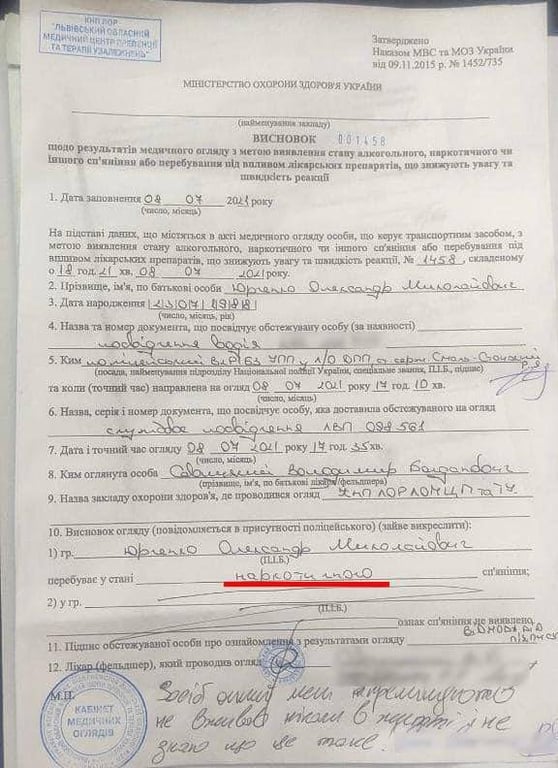 КНП ЛОР
"ЛЬВІВСЬКИЙ ОБЛАСНИЙ
МЕДИЧНИЙ ЦЕНТР ПРЕВЕНЦІЇ
ТА ТЕРАПІЇ УЗАЛЕЖНЕНЬ"
Затверджено
Наказом МВС та МОЗ України
від 09.11.2015 р. № 1452/735
МІНІСТЕРСТВО ОХОРОНИ ЗДОРОВ'Я УКРАЇНИ
(найменування закладу)
ВИСНОВОК 001458
щодо результатів медичного огляду з метою виявлення стану алкогольного, наркотичного чи
іншого сп'яніння або перебування під впливом лікарських препаратів, що знижують увагу та
швидкість реакції
1. Дата заповнення 08 07 2021 року
(число, місяць)
На підставі даних, що містяться в акті медичного огляду особи, що керує транспортним засобом, з
метою виявлення стану алкогольного, наркотичного чи іншого сп'яніння або перебування під
впливом лікарських препаратів, що знижують увагу та швидкість реакції, № 1458, складеному
о 18 год. 21 хв. 08 07 2021 року.
2. Прізвище, ім'я, по батькові особи Юрченко Олександр Миколайович
3. Дата народження
(число, місяць, рік)
4. Назва та номер документа, що посвідчує обстежувану особу (за наявності)
посвідчення водія
5. Ким поліцейський
(посада, найменування підрозділу Національної поліції України, спеціальне звання, П.І.Б., підпис)
та коли (точний час) направлена на огляд 08 07 2021 року 17 год. 10 хв.
(число, місяць)
6. Назва, серія і номер документа, що посвідчує особу, яка доставила обстежуваного на огляд
службове посвідчення ЛВП 098561
7. Дата і точний час огляду 08 07 2021 року 17 год. 35 хв.
(число, місяць)
8. Ким оглянута особа Володимир Богданович
(прізвище, ім'я, по батькові лікаря/фельдшера)
9. Назва закладу охорони здоров'я, де проводився огляд КНП ЛОР ЛОМЦПтаТУ
10. Висновок огляду (повідомляється в присутності поліцейського) (зайве викреслити):
1) гр. Юрченко Олександр Миколайович
(П.І.Б.)
перебуває у стані наркотичного сп'яніння;
2) у гр.
(П.І.Б.)
ознак сп'яніння не виявлено
11. Підпис обстежуваної особи про ознайомлення з результатами огляду відмова від підпису
12. Лікар (фельдшер), який проводив огляд
М.П.
КАБІНЕТ
МЕДИЧНИХ
ОГЛЯДІВ
не вживав ніколи в житті і не
знаю що це таке.